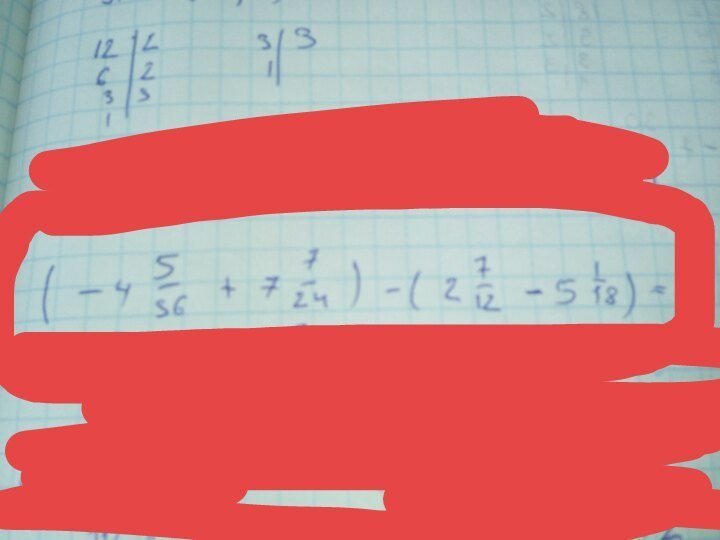 12 | 2 3 | 3
6 | 2 1 |
3 | 3
1
( - 4 5/36 + 7 7/24 ) - ( 2 7/12 - 5 1/18 ) =